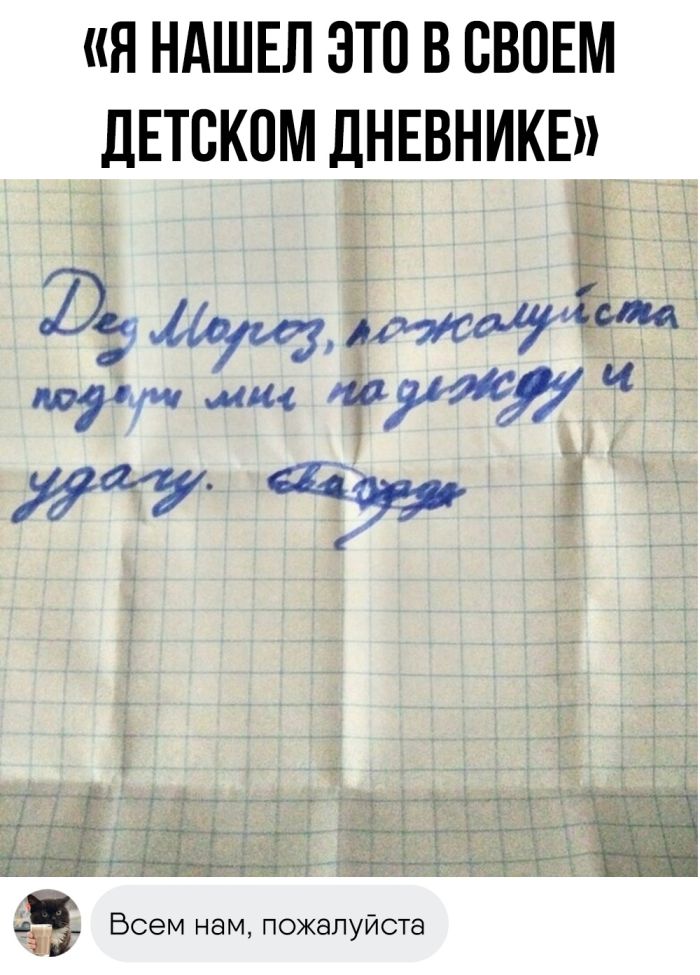 «Я НАШЕЛ ЭТО В СВОЕМ
ДЕТСКОМ ДНЕВНИКЕ»
Дед Мороз, пожалуйста
подари мне надежду и
удачу.
Всем нам, пожалуйста